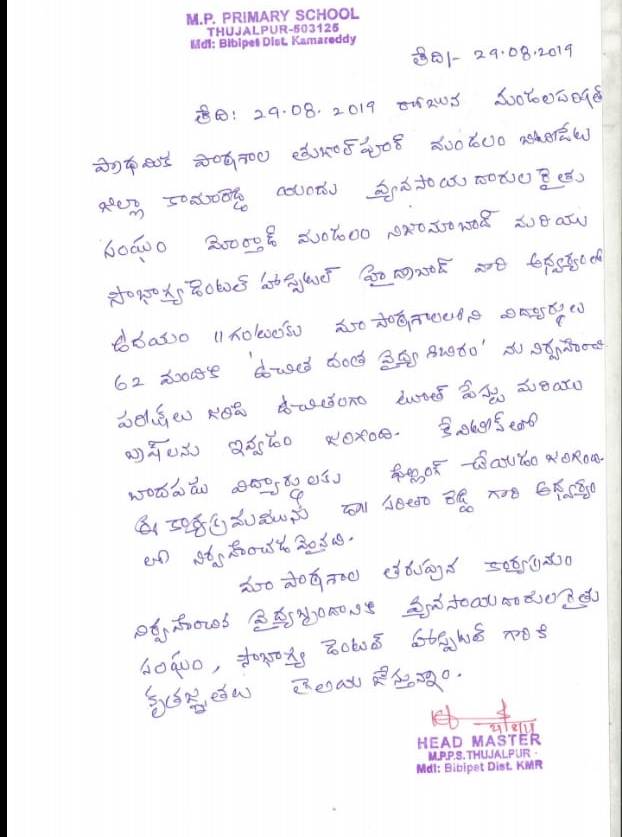 M.P. PRIMARY SCHOOL
THUJALPUR-503125
Mdl: Bibipet Dist. Kamareddy
తేది/- 29.08.2019
తేది: 29.08.2019 రోజున మండలపరిషత్
ప్రాథమిక పాఠశాల తుజాల్‌పూర్ మండలం బిబిపేట
జిల్లా కామారెడ్డి యందు వ్యవసాయదారుల రైతు
సంఘం మోర్తాడ్ మండలం నిజామాబాద్ మరియు
సౌభాగ్య డెంటల్ హాస్పిటల్ హైద్రాబాద్ వారి ఆధ్వర్యంలో
ఉదయం 11 గంటలకు మా పాఠశాలలోని విద్యార్థులు
62 మందికి 'ఉచిత దంత వైద్య శిబిరం' ను నిర్వహించి
పరీక్షలు జరిపి ఉచితంగా టూత్ పేస్టు మరియు
బ్రష్‌లను ఇవ్వడం జరిగింది. కేవిటీస్‌తో
బాదపడు విద్యార్థులకు ఫిల్లింగ్ చేయడం జరిగింది.
ఈ కార్యక్రమమును డా|| సరితా రెడ్డి గారి ఆధ్వర్యం
లో నిర్వహించడమైనది.
మా పాఠశాల తరుపున కార్యక్రమం
నిర్వహించిన వైద్యబృందానికి వ్యవసాయదారుల రైతు
సంఘం, సౌభాగ్య డెంటల్ హాస్పిటల్ గారికి
కృతజ్ఞతలు తెలియజేస్తున్నాం.
HEAD MASTER
M.P.P.S. THUJALPUR
Mdl: Bibipet Dist. KMR